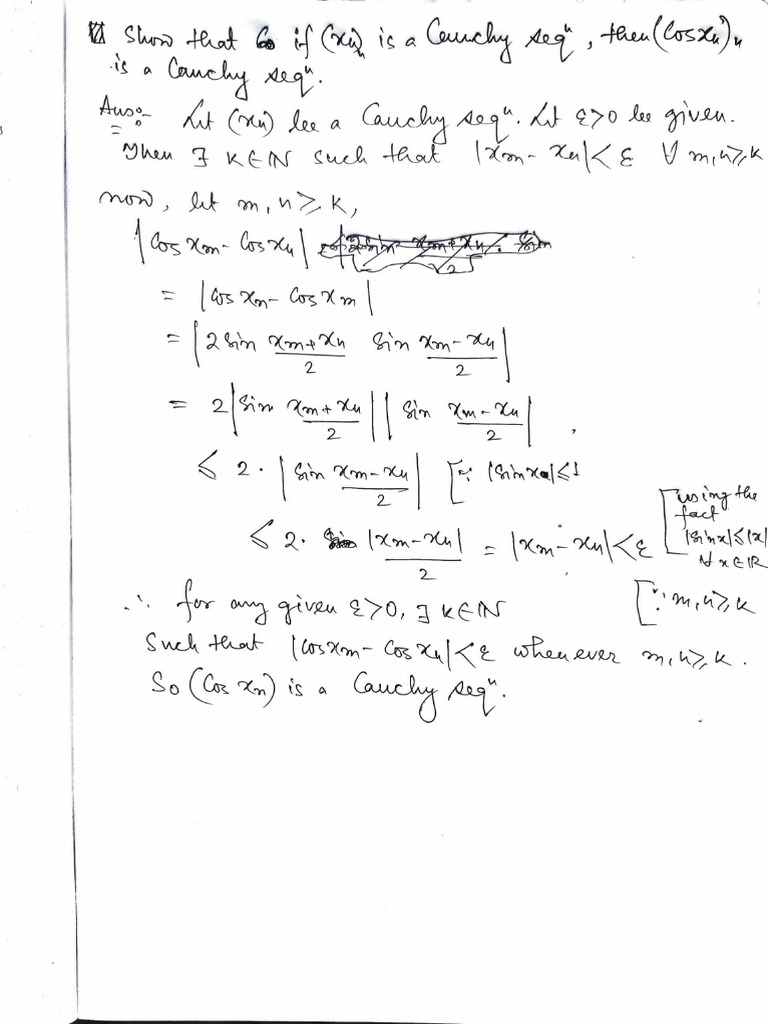 Show that if (xₙ)ₙ is a Cauchy seqⁿ, then (Cos xₙ)ₙ
is a Cauchy seqⁿ.
Ans:- Let (xₙ) be a Cauchy seqⁿ. Let ε>0 be given.
Then ∃ K∈ℕ such that |xₘ - xₙ| < ε ∀ m,n ≥ K
now, let m, n ≥ K,
|Cos xₘ - Cos xₙ|
= |Cos xₙ - Cos xₘ|
= |2 Sin (xₘ + xₙ)/2 Sin (xₘ - xₙ)/2|
= 2 |Sin (xₘ + xₙ)/2| |Sin (xₘ - xₙ)/2|,
≤ 2 · |Sin (xₘ - xₙ)/2| [∵ |Sin x| ≤ 1
≤ 2 · |xₘ - xₙ|/2 = |xₘ - xₙ| < ε
[using the
fact
|sin x| ≤ |x|
∀ x∈ℝ
[∵ m,n ≥ K
∴ for any given ε>0, ∃ K∈ℕ
Such that |Cos xₘ - Cos xₙ| < ε whenever m,n ≥ K.
So (Cos xₙ) is a Cauchy seqⁿ.